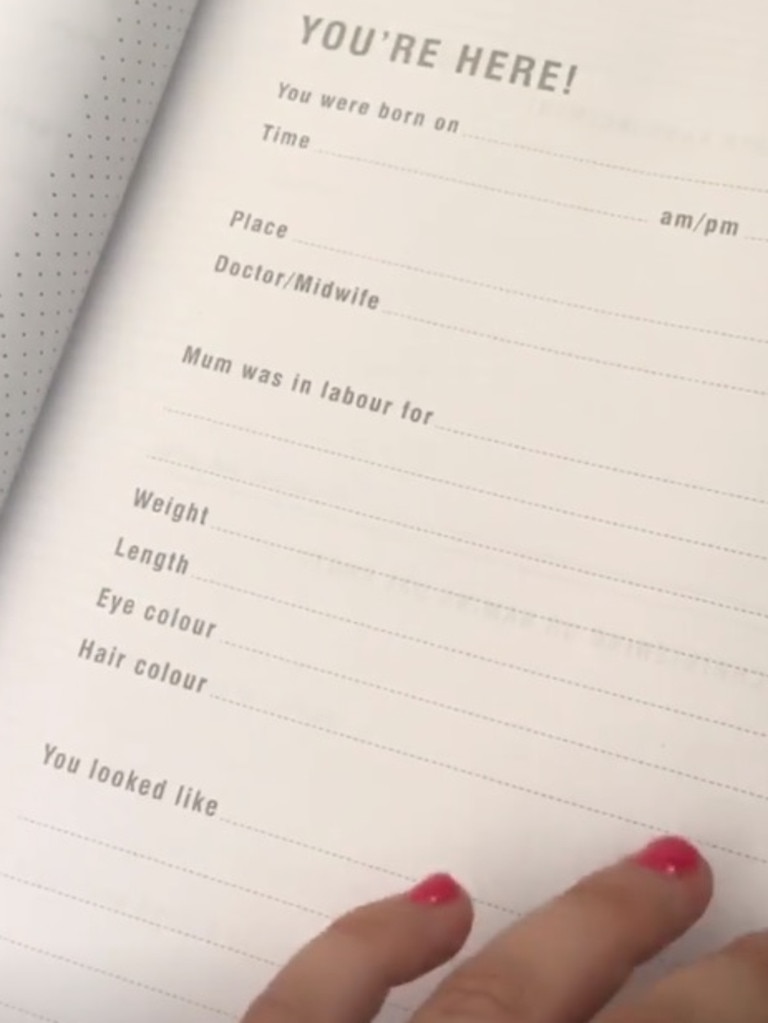 YOU'RE HERE!
You were born on
Time am/pm
Place
Doctor/Midwife
Mum was in labour for
Weight
Length
Eye colour
Hair colour
You looked like